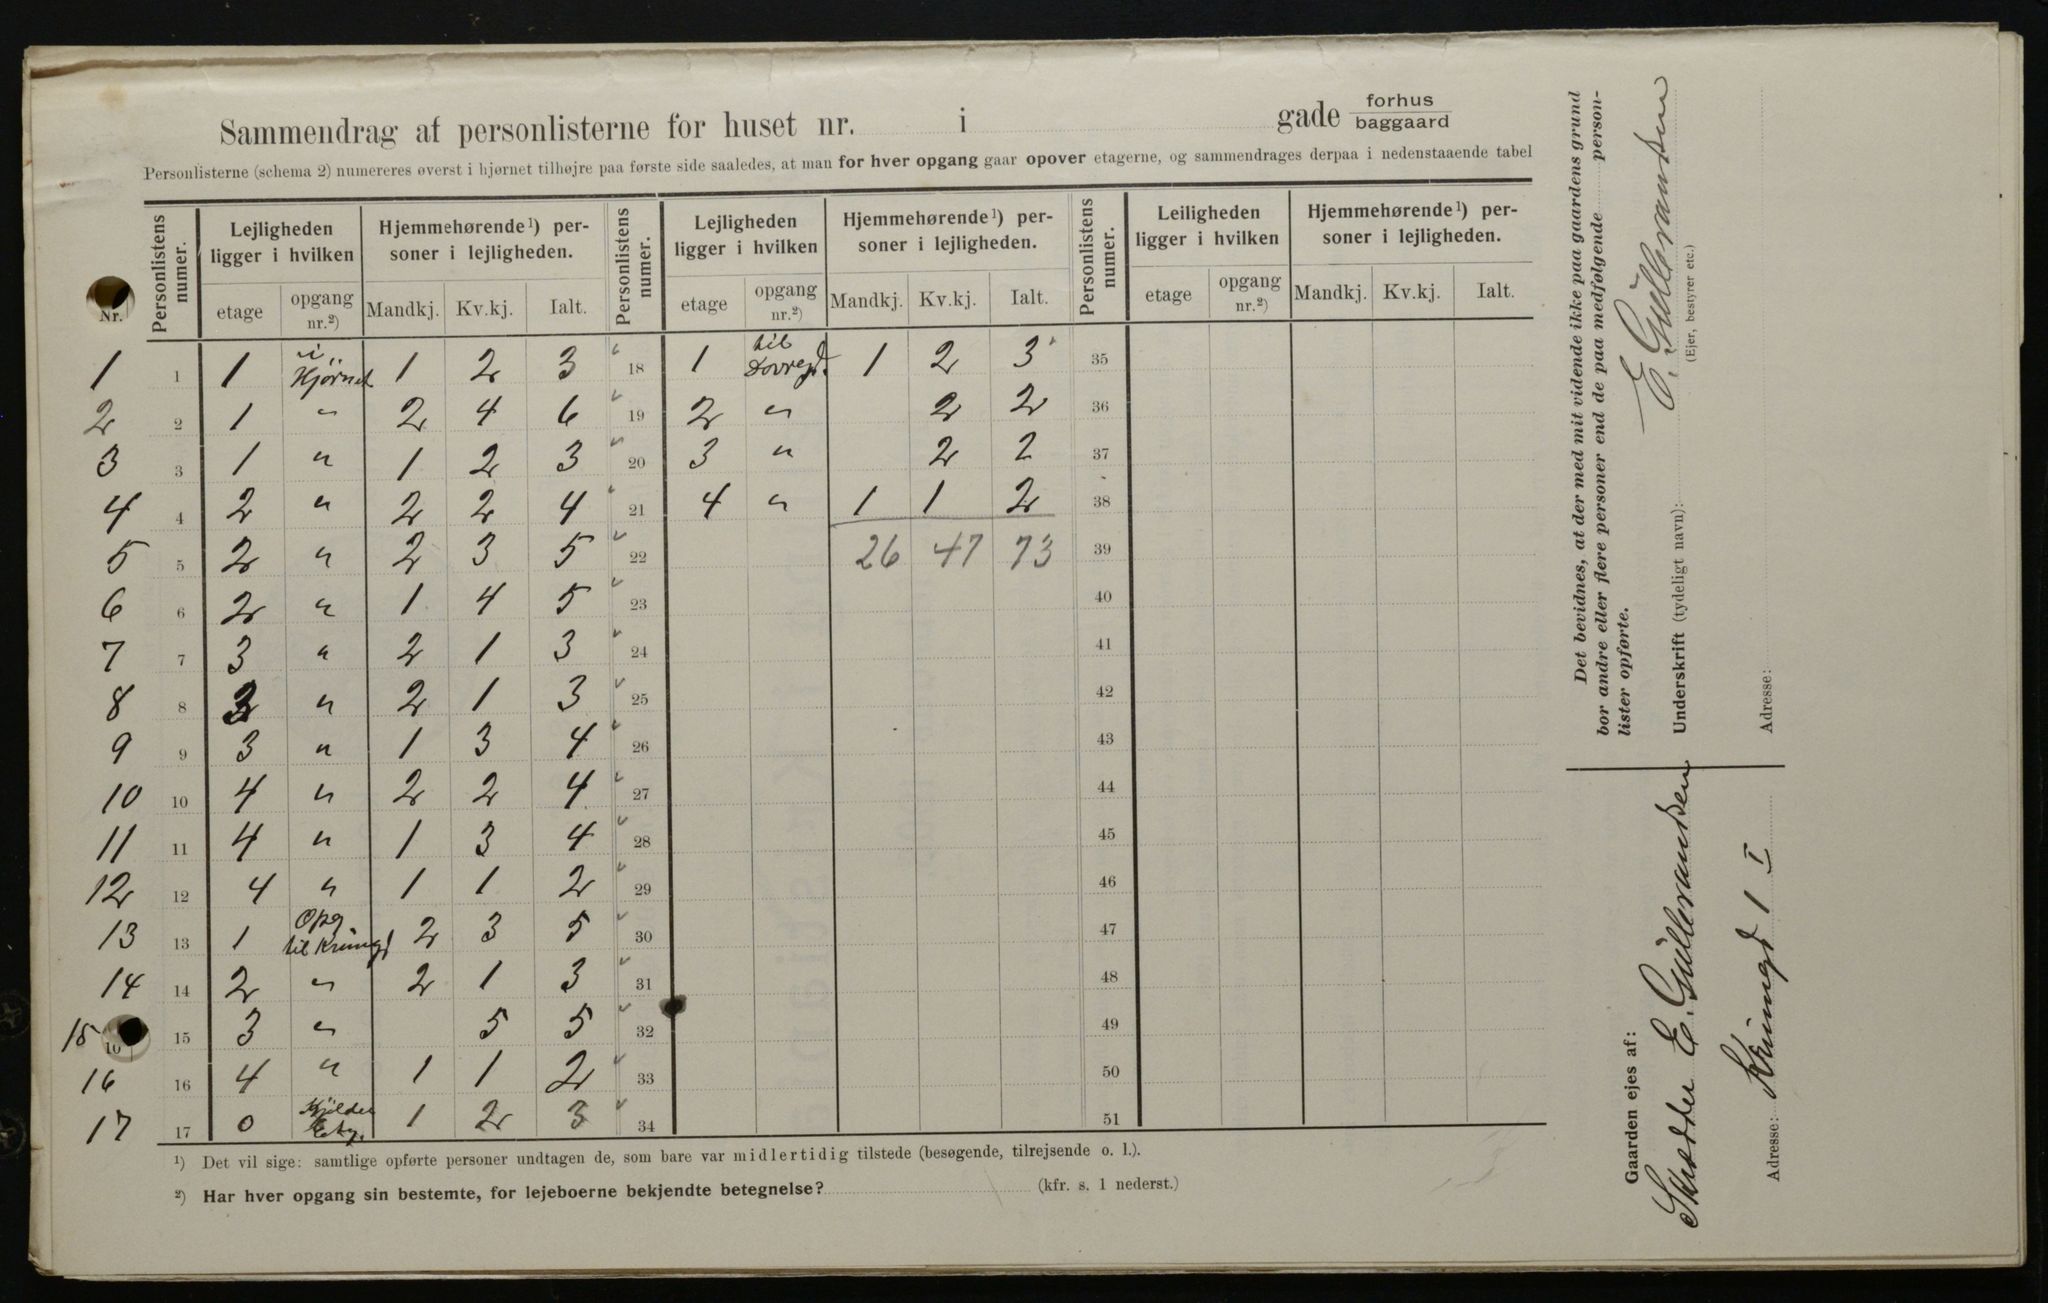 Sammendrag af personlisterne for huset nr. i gade forhus baggaard
Personlisterne (schema 2) numereres øverst i hjørnet tilhøjre paa første side saaledes, at man for hver opgang gaar opover etagerne, og sammendrages derpaa i nedenstaaende tabel
Nr. Personlistens numer. Lejligheden ligger i hvilken Hjemmehørende¹) personer i lejligheden. Personlistens numer. Lejligheden ligger i hvilken Hjemmehørende¹) personer i lejligheden. Personlistens numer. Leiligheden ligger i hvilken Hjemmehørende¹) personer i lejligheden.
etage opgang nr.²) Mandkj. Kv.kj. Ialt. etage opgang nr.²) Mandkj. Kv.kj. Ialt. etage opgang nr.²) Mandkj. Kv.kj. Ialt.
1 1 1 i Hjørnet 1 2 3 18 1 til Dovregd. 1 2 3 35
2 2 1 " 2 4 6 19 2 " 2 2 36
3 3 1 " 1 2 3 20 3 " 2 2 37
4 4 2 " 2 2 4 21 4 " 1 1 2 38
5 5 2 " 2 3 5 22 26 47 73 39
6 6 2 " 1 4 5 23 40
7 7 3 " 2 1 3 24 41
8 8 3 " 2 1 3 25 42
9 9 3 " 1 3 4 26 43
10 10 4 " 2 2 4 27 44
11 11 4 " 1 3 4 28 45
12 12 4 " 1 1 2 29 46
13 13 1 Opg til Krumgd 2 3 5 30 47
14 14 2 " 2 1 3 31 48
15 10 15 3 " 5 5 32 49
16 16 4 " 1 1 2 33 50
17 17 0 Kjelder 1 2 3 34 51
¹) Det vil sige: samtlige opførte personer undtagen de, som bare var midlertidig tilstede (besøgende, tilrejsende o. l.).
²) Har hver opgang sin bestemte, for lejeboerne bekjendte betegnelse? (kfr. s. 1 nederst.)
Det bevidnes, at der med mit vidende ikke paa gaardens grund
bor andre eller flere personer end de paa medfølgende person-
lister opførte.
Underskrift (tydeligt navn): E. Gulbrandsen
(Ejer, bestyrer etc.)
Adresse:
Gaarden ejes af:
E. Gulbrandsen
Adresse: Krumgd 1 I